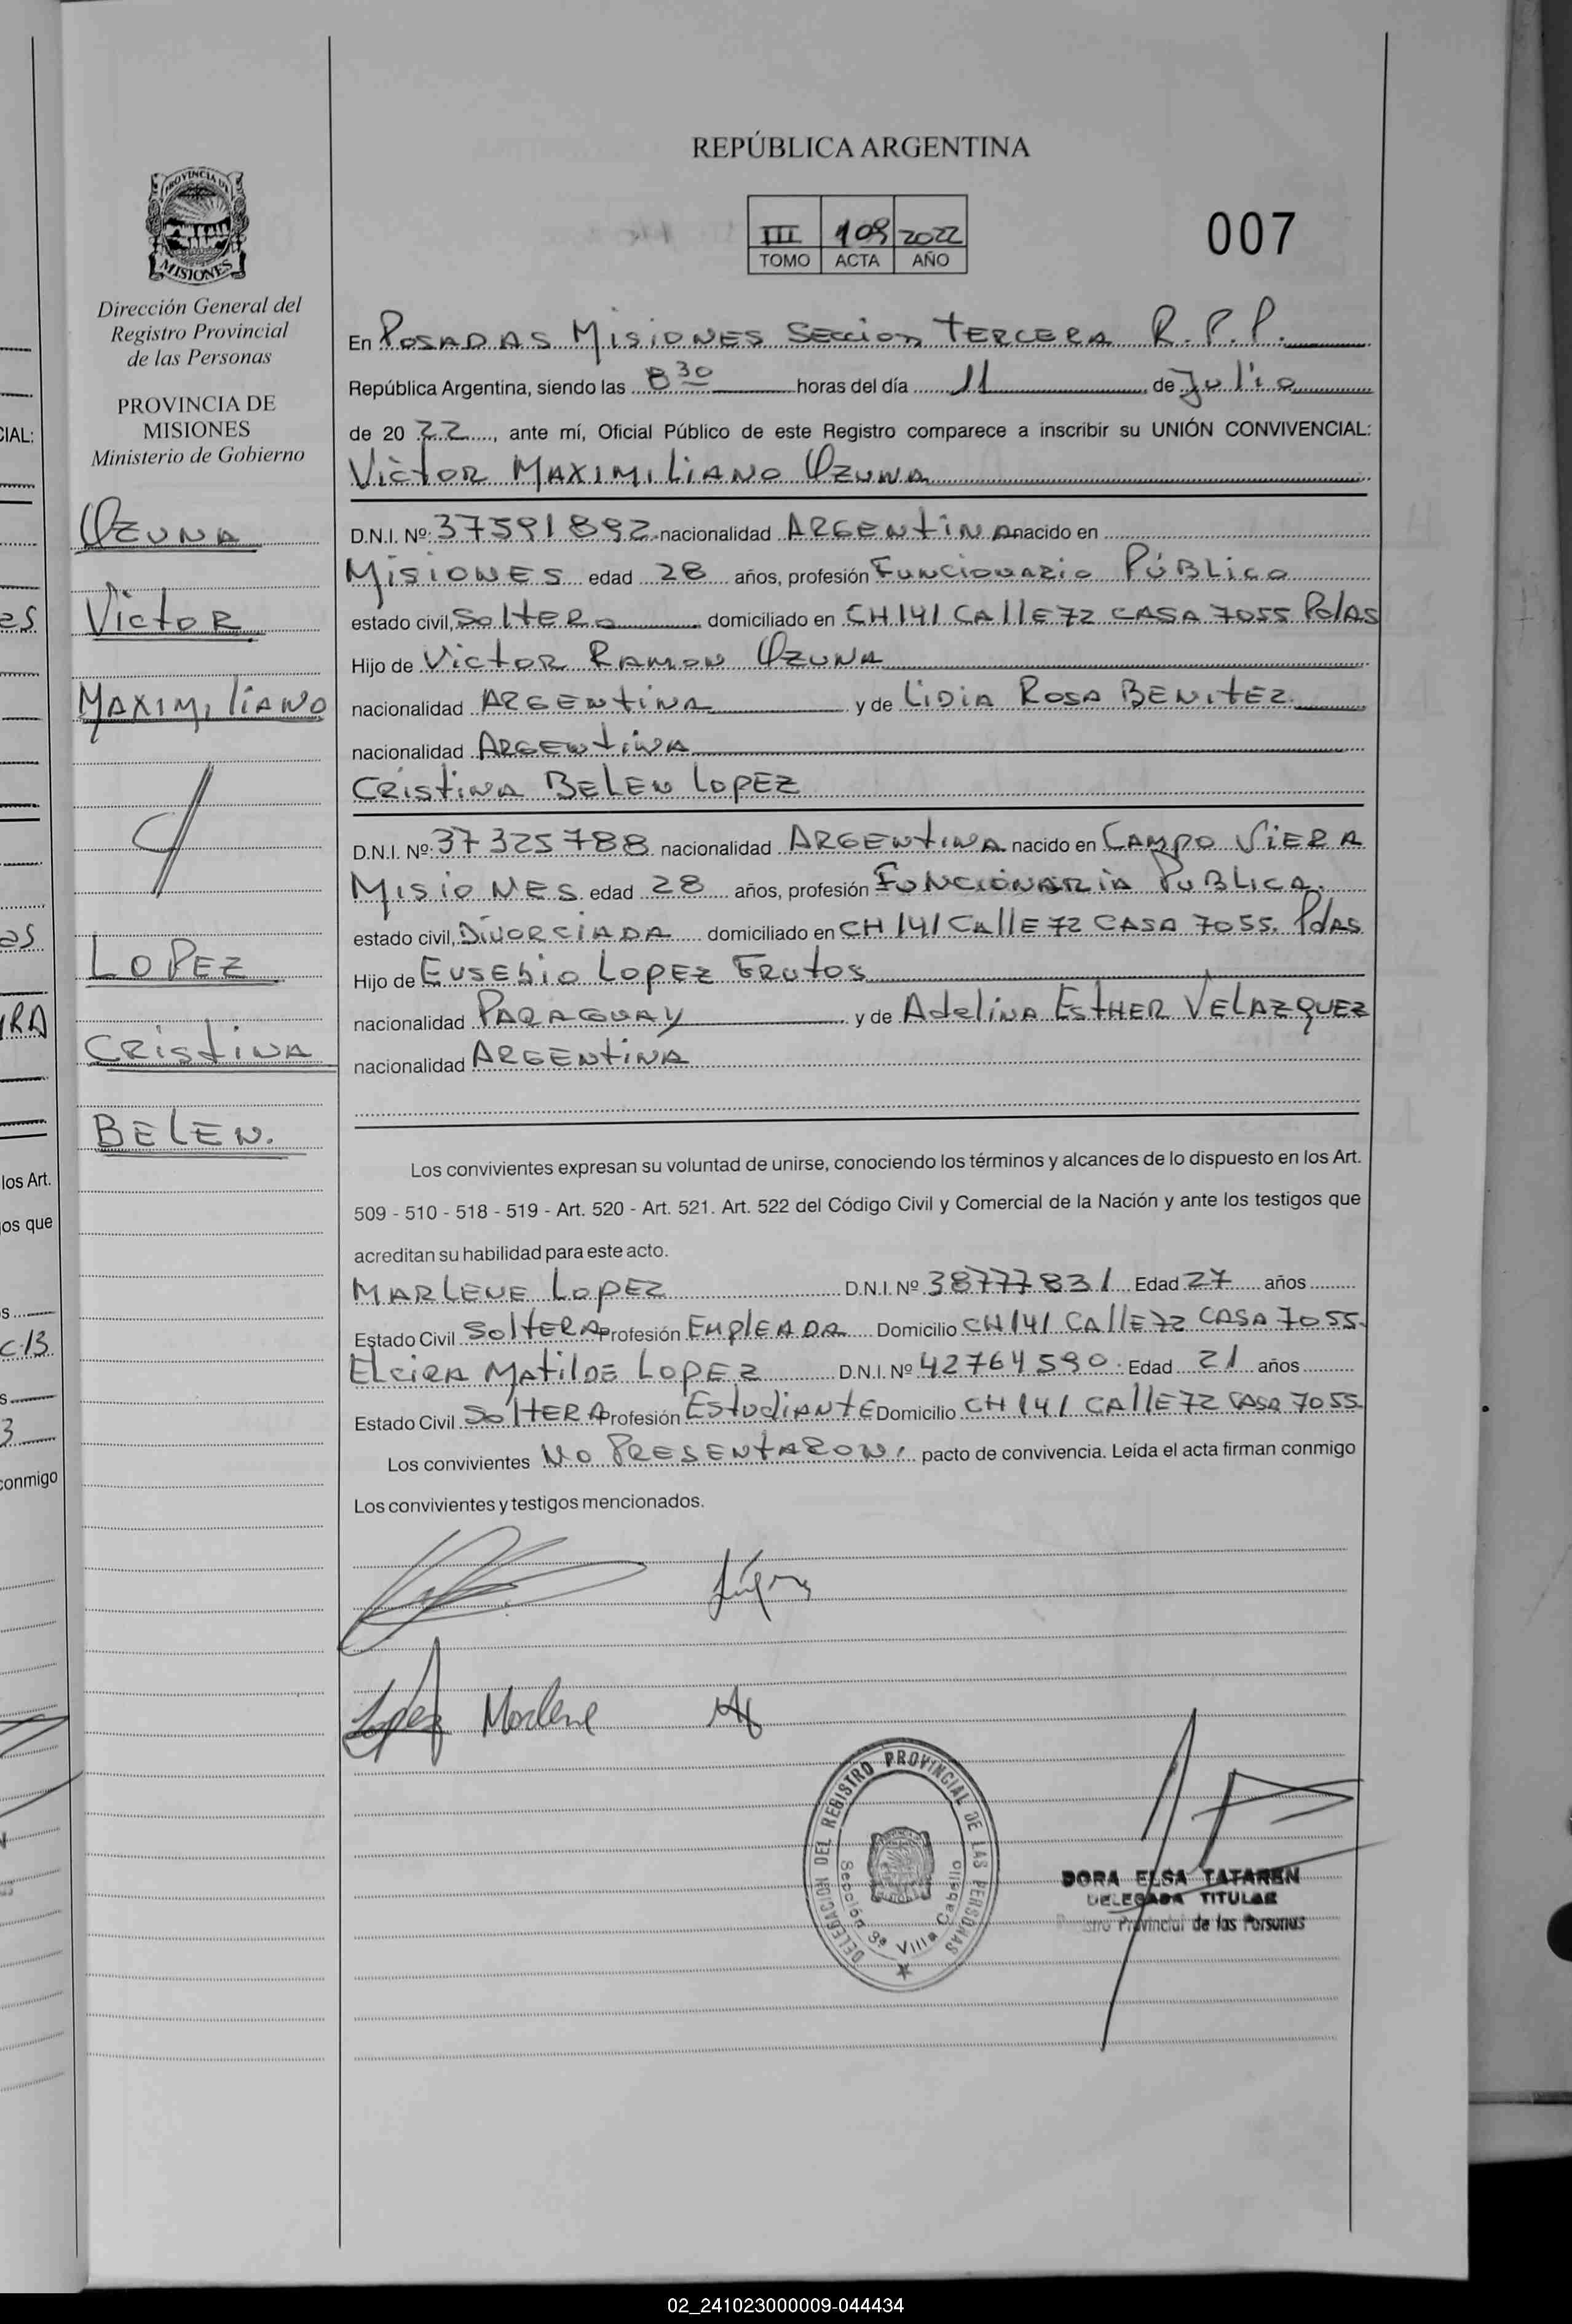 REPÚBLICA ARGENTINA
III 109 2022
TOMO ACTA AÑO
007
PROVINCIA DE
MISIONES
Dirección General del
Registro Provincial
de las Personas
PROVINCIA DE
MISIONES
Ministerio de Gobierno
OZUNA
VICTOR
MAXIMILIANO
LOPEZ
CRISTINA
BELEN.
En POSADAS MISIONES SECCION TERCERA R.P.P.
República Argentina, siendo las 8 30 horas del día 11 de Julio
de 20 22, ante mí, Oficial Público de este Registro comparece a inscribir su UNIÓN CONVIVENCIAL:
VICTOR MAXIMILIANO OZUNA
D.N.I. Nº: 37591892 nacionalidad ARGENTINA nacido en
MISIONES edad 28 años, profesión FUNCIONARIO PÚBLICO
estado civil, SOLTERO domiciliado en CH 141 CALLE 72 CASA 7055 PdAS
Hijo de VICTOR RAMON OZUNA
nacionalidad ARGENTINA y de LIDIA ROSA BENITEZ.
nacionalidad ARGENTINA
CRISTINA BELEN LOPEZ
D.N.I. Nº: 37325788 nacionalidad ARGENTINA nacido en CAMPO VIERA
MISIONES edad 28 años, profesión FUNCIONARIA PUBLICA.
estado civil, DIVORCIADA domiciliado en CH 141 CALLE 72 CASA 7055. PdAS
Hijo de EUSEBIO LOPEZ FRUTOS
nacionalidad PARAGUAY y de ADELINA ESTHER VELAZQUEZ
nacionalidad ARGENTINA
Los convivientes expresan su voluntad de unirse, conociendo los términos y alcances de lo dispuesto en los Art.
509 - 510 - 518 - 519 - Art. 520 - Art. 521. Art. 522 del Código Civil y Comercial de la Nación y ante los testigos que
acreditan su habilidad para este acto.
MARLENE LOPEZ D.N.I. Nº 38777831 Edad 27 años
Estado Civil SOLTERA Profesión EMPLEADA Domicilio CH 141 CALLE 72 CASA 7055.
ELCIRA MATILDE LOPEZ D.N.I. Nº 42764590. Edad 21 años
Estado Civil SOLTERA Profesión ESTUDIANTE Domicilio CH 141 CALLE 72 CASA 7055.
Los convivientes NO PRESENTARON, pacto de convivencia. Leída el acta firman conmigo
Los convivientes y testigos mencionados.
Lopez Marlene
DELEGACION DEL REGISTRO PROVINCIAL DE LAS PERSONAS
Sección 3ª Villa Cabello
DORA ELSA TATAREN
DELEGADA TITULAR
Provincial de las Personas
CIAL:
es
as
YRA
los Art.
os que
s
C.13
s
3
conmigo
02_241023000009-044434